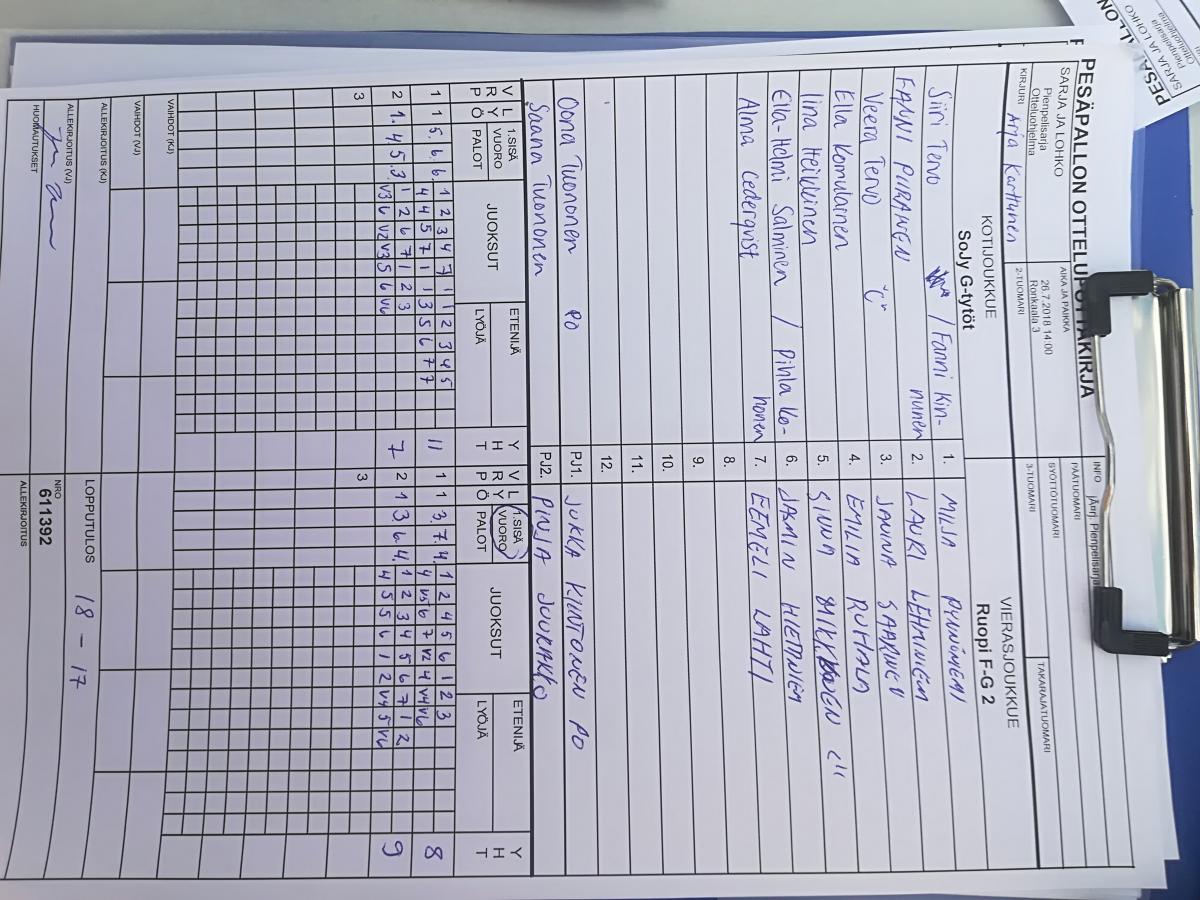 PESÄPALLON OTTELUPÖYTÄKIRJA
SARJA JA LOHKO
Pienpelisarja
Otteluohjelma
AIKA JA PAIKKA
26.7.2018 14.00
Ronkaala 3
INFO
KIRJURI
Arja Karttunen
2-TUOMARI
PÄÄTUOMARI
SYÖTTÖTUOMARI
3-TUOMARI
TAKARAJATUOMARI
KOTIJOUKKUE
SoJy G-tytöt
VIERASJOUKKUE
Ruopi F-G 2
Siiri Tervo / Fanni Kin-
nunen
1. MILJA
FANNI PIIRANEN
2. LAURI LEHTINIEMI
Veera Tervo "C"
3. JANINA SAARINEN
Ella Komulainen
4. EMILIA
Iina Heikkinen
5.
Ella-Helmi Salminen / Pihla Ko-
honen
6. HIETANIEMI
Alma Cederqvist
7. EEMELI LAHTI
8.
9.
10.
11.
12.
Oona Tuononen PO
PJ1. JUKKA KINTONEN PO
Saana Tuononen
PJ2. PINJA
V P L R Y Ö 1.SISÄ VUORO PALOT JUOKSUT ETENIJÄ LYÖJÄ Y H T
V P L R Y Ö 1.SISÄ VUORO PALOT JUOKSUT ETENIJÄ LYÖJÄ Y H T
1 1 5. 6. 6. 1 2 3 4 7 1 1 2 3 4 5
4 4 5 7 1 1 3 5 6 7 7 11
1 1 3. 7. 4. 1 2 4 5 6 1 2 3
4 V5 6 7 V2 4 V4 V6 8
2 1. 4. 5. 3. 1 2 6 7 1 2 3
V3 6 V2 V3 5 6 V6 7
2 1 3 6. 4. 1 2 3 4 5 6 7 1 2
4 5 5 6 1 2 V4 5 V6 9
3
3
VAIHDOT (KJ)
VAIHDOT (VJ)
ALLEKIRJOITUS (KJ)
LOPPUTULOS
18 - 17
ALLEKIRJOITUS (VJ)
NRO
611392
HUOMAUTUKSET
ALLEKIRJOITUS